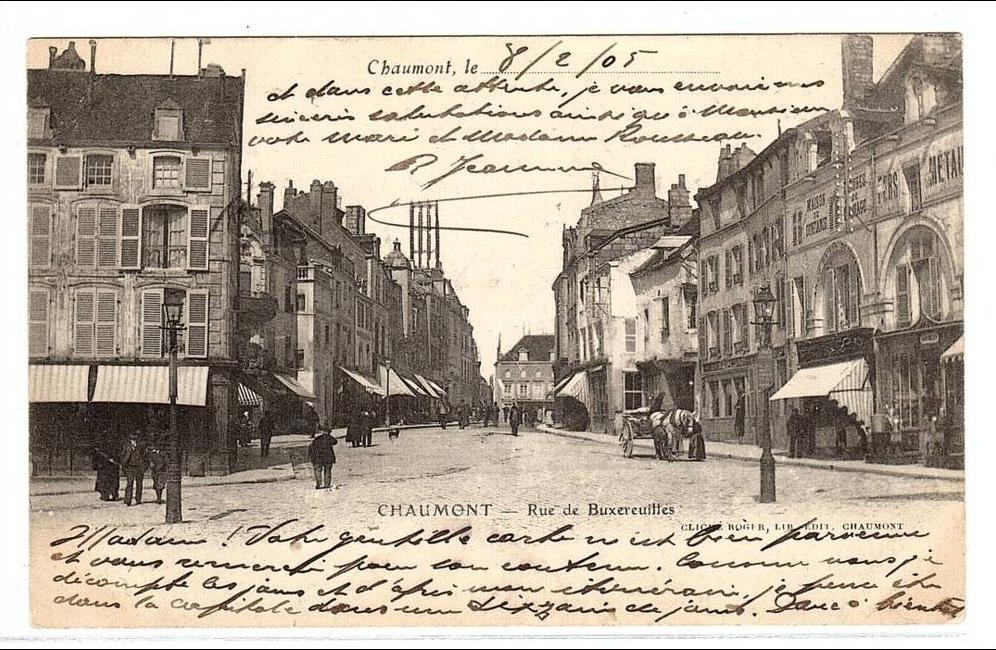 Chaumont, le 8/2/05
et dans cette attente, je vous envoie mes
sincères salutations ainsi qu'à Monsieur
votre mari et Madame Rousseau.
MAISON
DE
CONFIANCE
FERS
MÉTAUX
CHAUMONT — Rue de Buxereuilles
CLICHÉ ROGER, LIB. EDIT. CHAUMONT
Madame ! Votre gentille carte m'est bien parvenue
et vous remercie pour son contenu. Comme vous je
décompte les jours et d'après mon itinéraire, je pense être
dans la capitale dans une dizaine de jours. Donc à bientôt